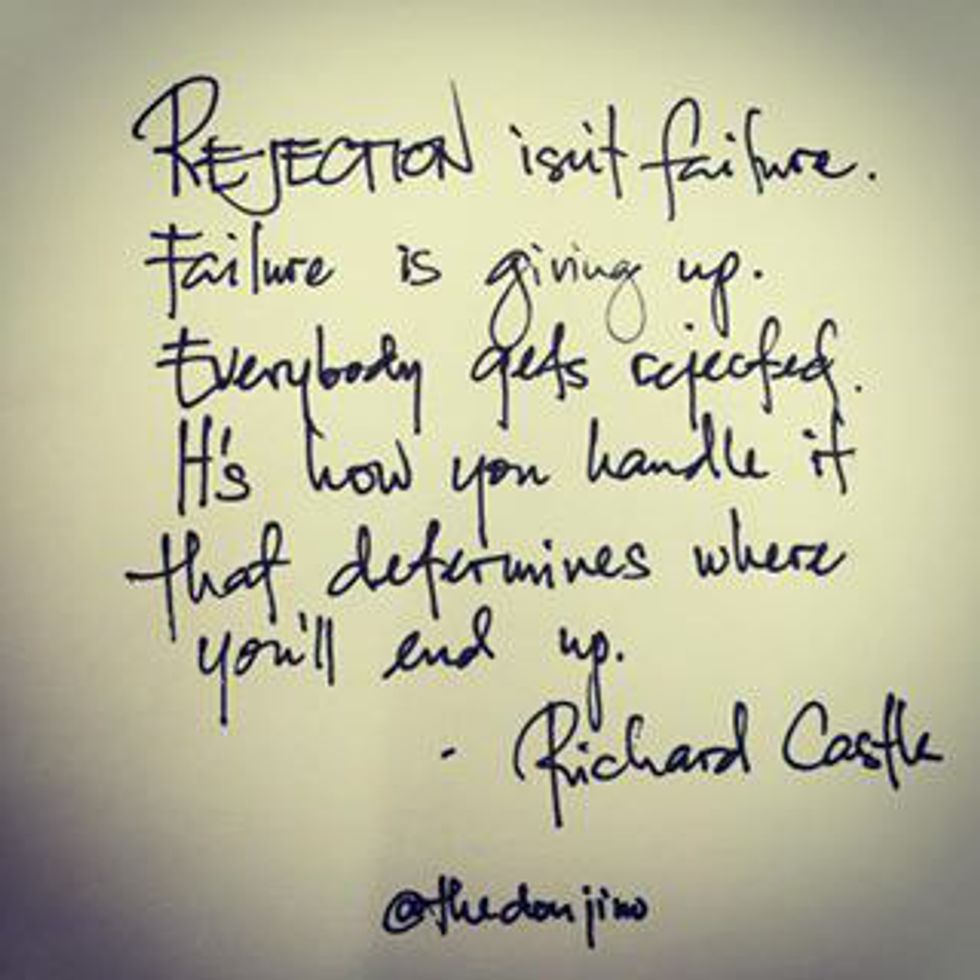 REJECTION isn't failure.
Failure is giving up.
Everybody gets rejected.
It's how you handle it
that determines where
you'll end up.
- Richard Castle
@thedonjino